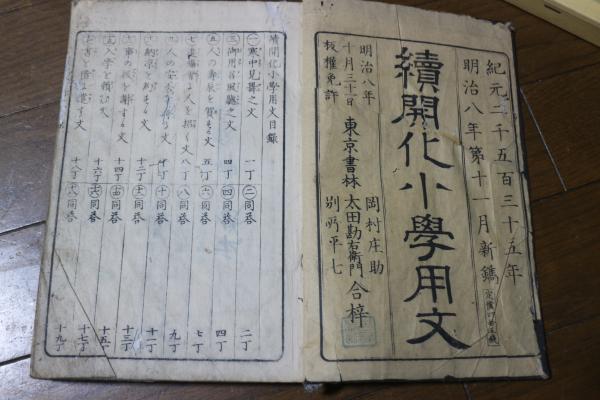 紀元二千五百三十五年
明治八年第十一月新鐫
續開化小學用文
岡村庄助
東京書林 太田勘右衛門 合梓
別所平七
明治八年
十月三十一日
板權免許
續開化小學用文目録
㊀寒中見舞之文 一丁 ㊁同答 二丁
㊂御用召風聴之文 四丁 ㊃同答 四丁
㊄人の壽辰を賀する文 五丁 ㊅同答 七丁
人を招く文 八丁 ㊇同答 九丁
九 人の安否を 文 ㊉同答 十一丁
納凉を約する文 十二丁 同答 十三丁
事の 後を謝する文 十四丁 同答 十五丁
入学を頼む文 十六丁 同答 十七丁
書を借に遣す文 十八丁 同答 十九丁